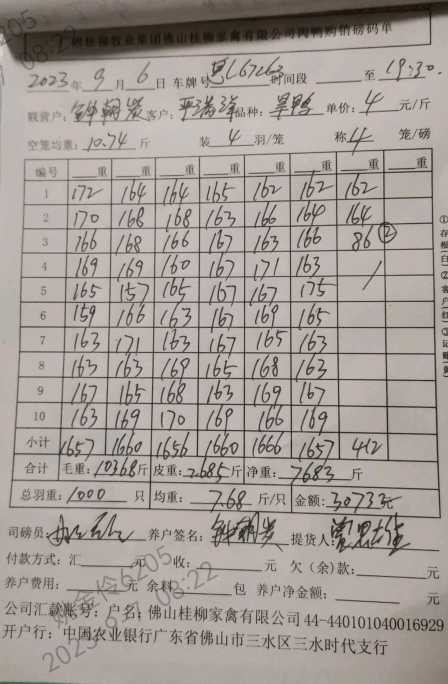 桂柳牧业集团佛山桂柳家禽有限公司肉鸭购销磅码单
2023年9月6日 车牌号 时间段 至19:30.
联营户: 客户: 品种: 单价:4元/斤
空笼均重:10.74斤 装4羽/笼 称4笼/磅
编号 重 重 重 重 重 重 重 重
1 172 164 164 165 162 162 162
2 170 168 168 163 166 164 164
3 166 168 166 167 163 166 86②
4 169 169 160 167 171 163
5 165 157 165 167 167 175
6 159 166 163 167 169 165
7 163 171 163 167 165 163
8 163 163 169 165 168 163
9 167 165 168 163 169 167
10 163 169 170 169 166 169
小计 1657 1660 1656 1660 1666 1657 412
合计 毛重:10368斤 皮重:2685斤 净重:7683斤
总羽重:1000只 均重:7.68斤/只 金额:30733元
司磅员: 养户签名: 提货人:
付款方式:汇 元 收: 元 欠(余)款: 元
养户费用: 元 余料 包 养户净金额: 元
公司汇款账号:户名:佛山桂柳家禽有限公司44-440101040016929
开户行:中国农业银行广东省佛山市三水区三水时代支行
①存根(白)②客户(红)③记账(黄)
6205
08:22